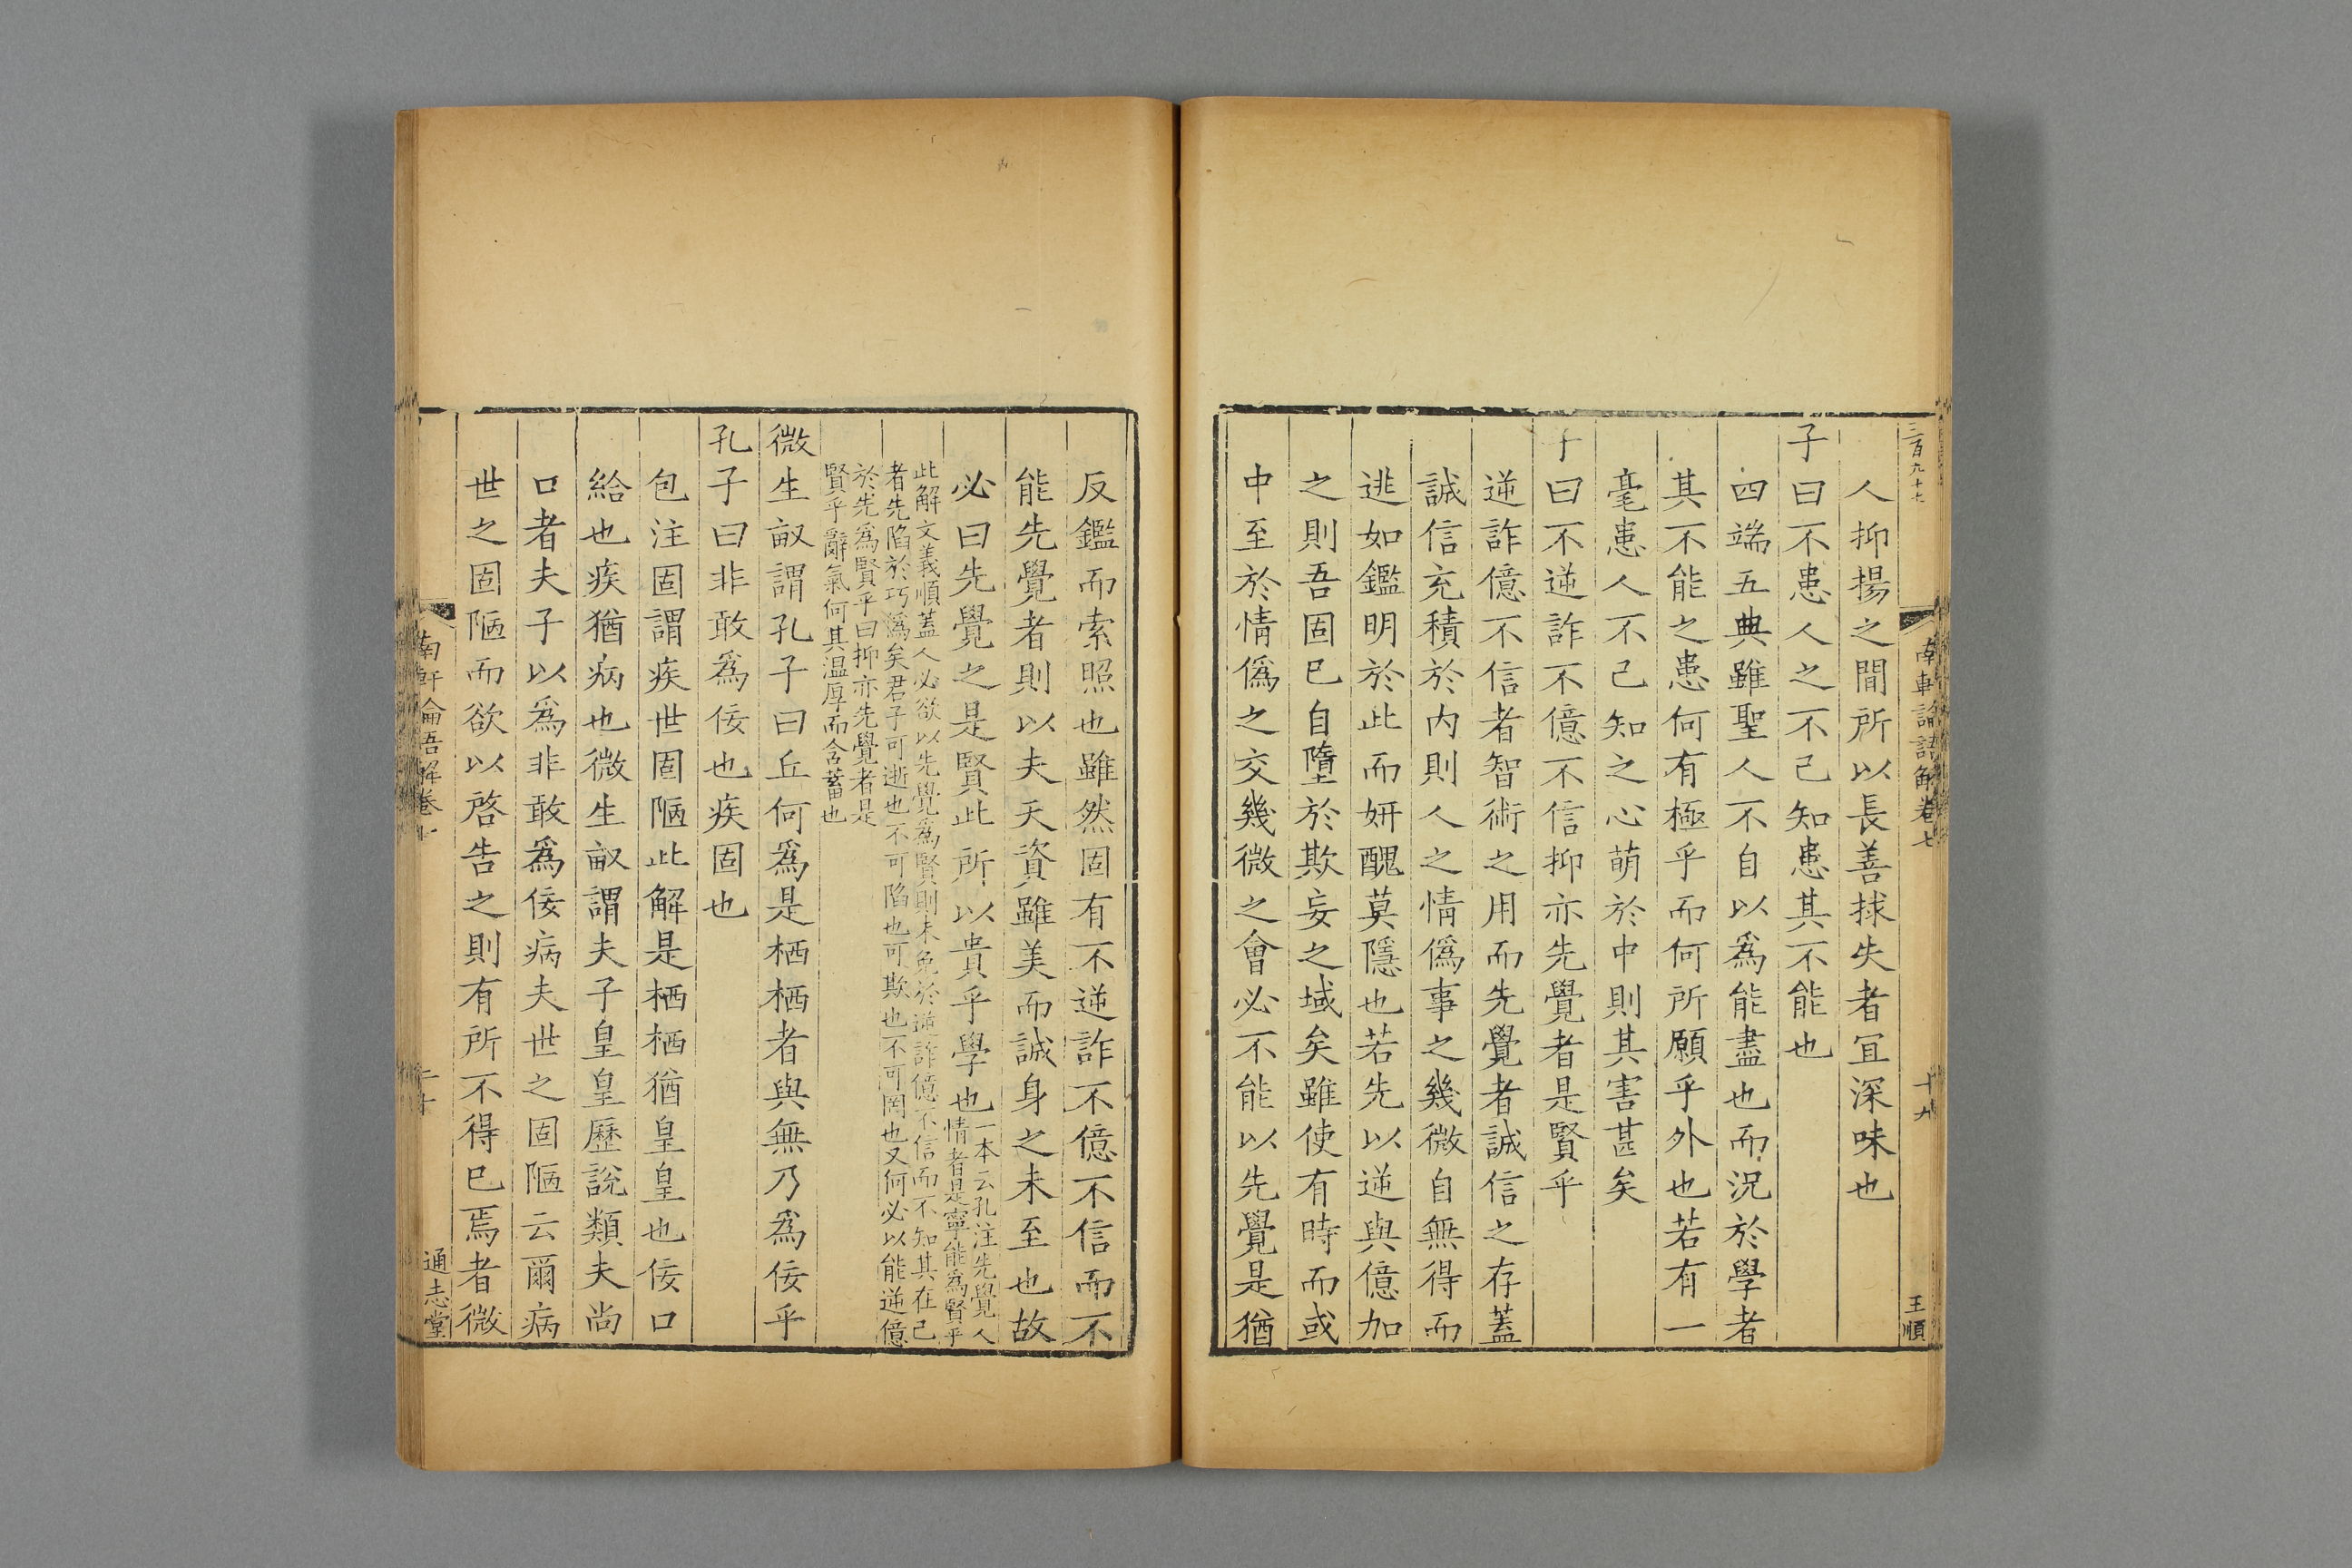 三百九十七
南軒論語解卷七
十九
王順
人抑揚之間所以長善捄失者宜深味也
子曰不患人之不己知患其不能也
四端五典雖聖人不自以爲能盡也而況於學者
其不能之患何有極乎而何所願乎外也若有一
毫患人不己知之心萌於中則其害甚矣
子曰不逆詐不億不信抑亦先覺者是賢乎
逆詐億不信者智術之用而先覺者誠信之存蓋
誠信充積於内則人之情僞事之幾微自無得而
逃如鑑明於此而妍醜莫隱也若先以逆與億加
之則吾固已自墮於欺妄之域矣雖使有時而或
中至於情僞之交幾微之會必不能以先覺是猶
反鑑而索照也雖然固有不逆詐不億不信而不
能先覺者則以夫天資雖美而誠身之未至也故
必曰先覺之是賢此所以貴乎學也
一本云孔注先覺人
情者是寧能爲賢乎
此解文義順蓋人必欲以先覺爲賢則未免於逆詐億不信而不知其在己
者先陷於巧僞矣君子可逝也不可陷也可欺也不可罔也又何必以能逆億
於先爲賢乎曰抑亦先覺者是
賢乎辭氣何其温厚而含蓄也
微生畝謂孔子曰丘何爲是栖栖者與無乃爲佞乎
孔子曰非敢爲佞也疾固也
包注固謂疾世固陋此解是栖栖猶皇皇也佞口
給也疾猶病也微生畝謂夫子皇皇歷說類夫尚
口者夫子以爲非敢爲佞病夫世之固陋云爾病
世之固陋而欲以啓告之則有所不得已焉者微
南軒論語解卷七
二十
通志堂